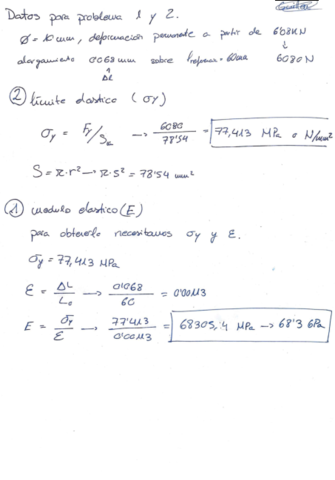 Datos para problema 1 y 2.
Ø = 10 mm, deformación permanente a partir de 6'08 kN
↓
alargamiento 0'068 mm sobre = 60mm 6080 N
↑
ΔL
② límite elástico (σy)
σy = Fy/So → 6080/78'54 = 77,413 MPa o N/mm²
S = π·r² → π·5² = 78'54 mm²
① modulo elastico (E)
para obtenerlo necesitamos σy y ε.
σy = 77,413 MPa
ε = ΔL/Lo → 0'068/60 = 0'00113
E = σy/ε → 77'413/0'00113 = 68305,4 MPa → 68'3 GPa